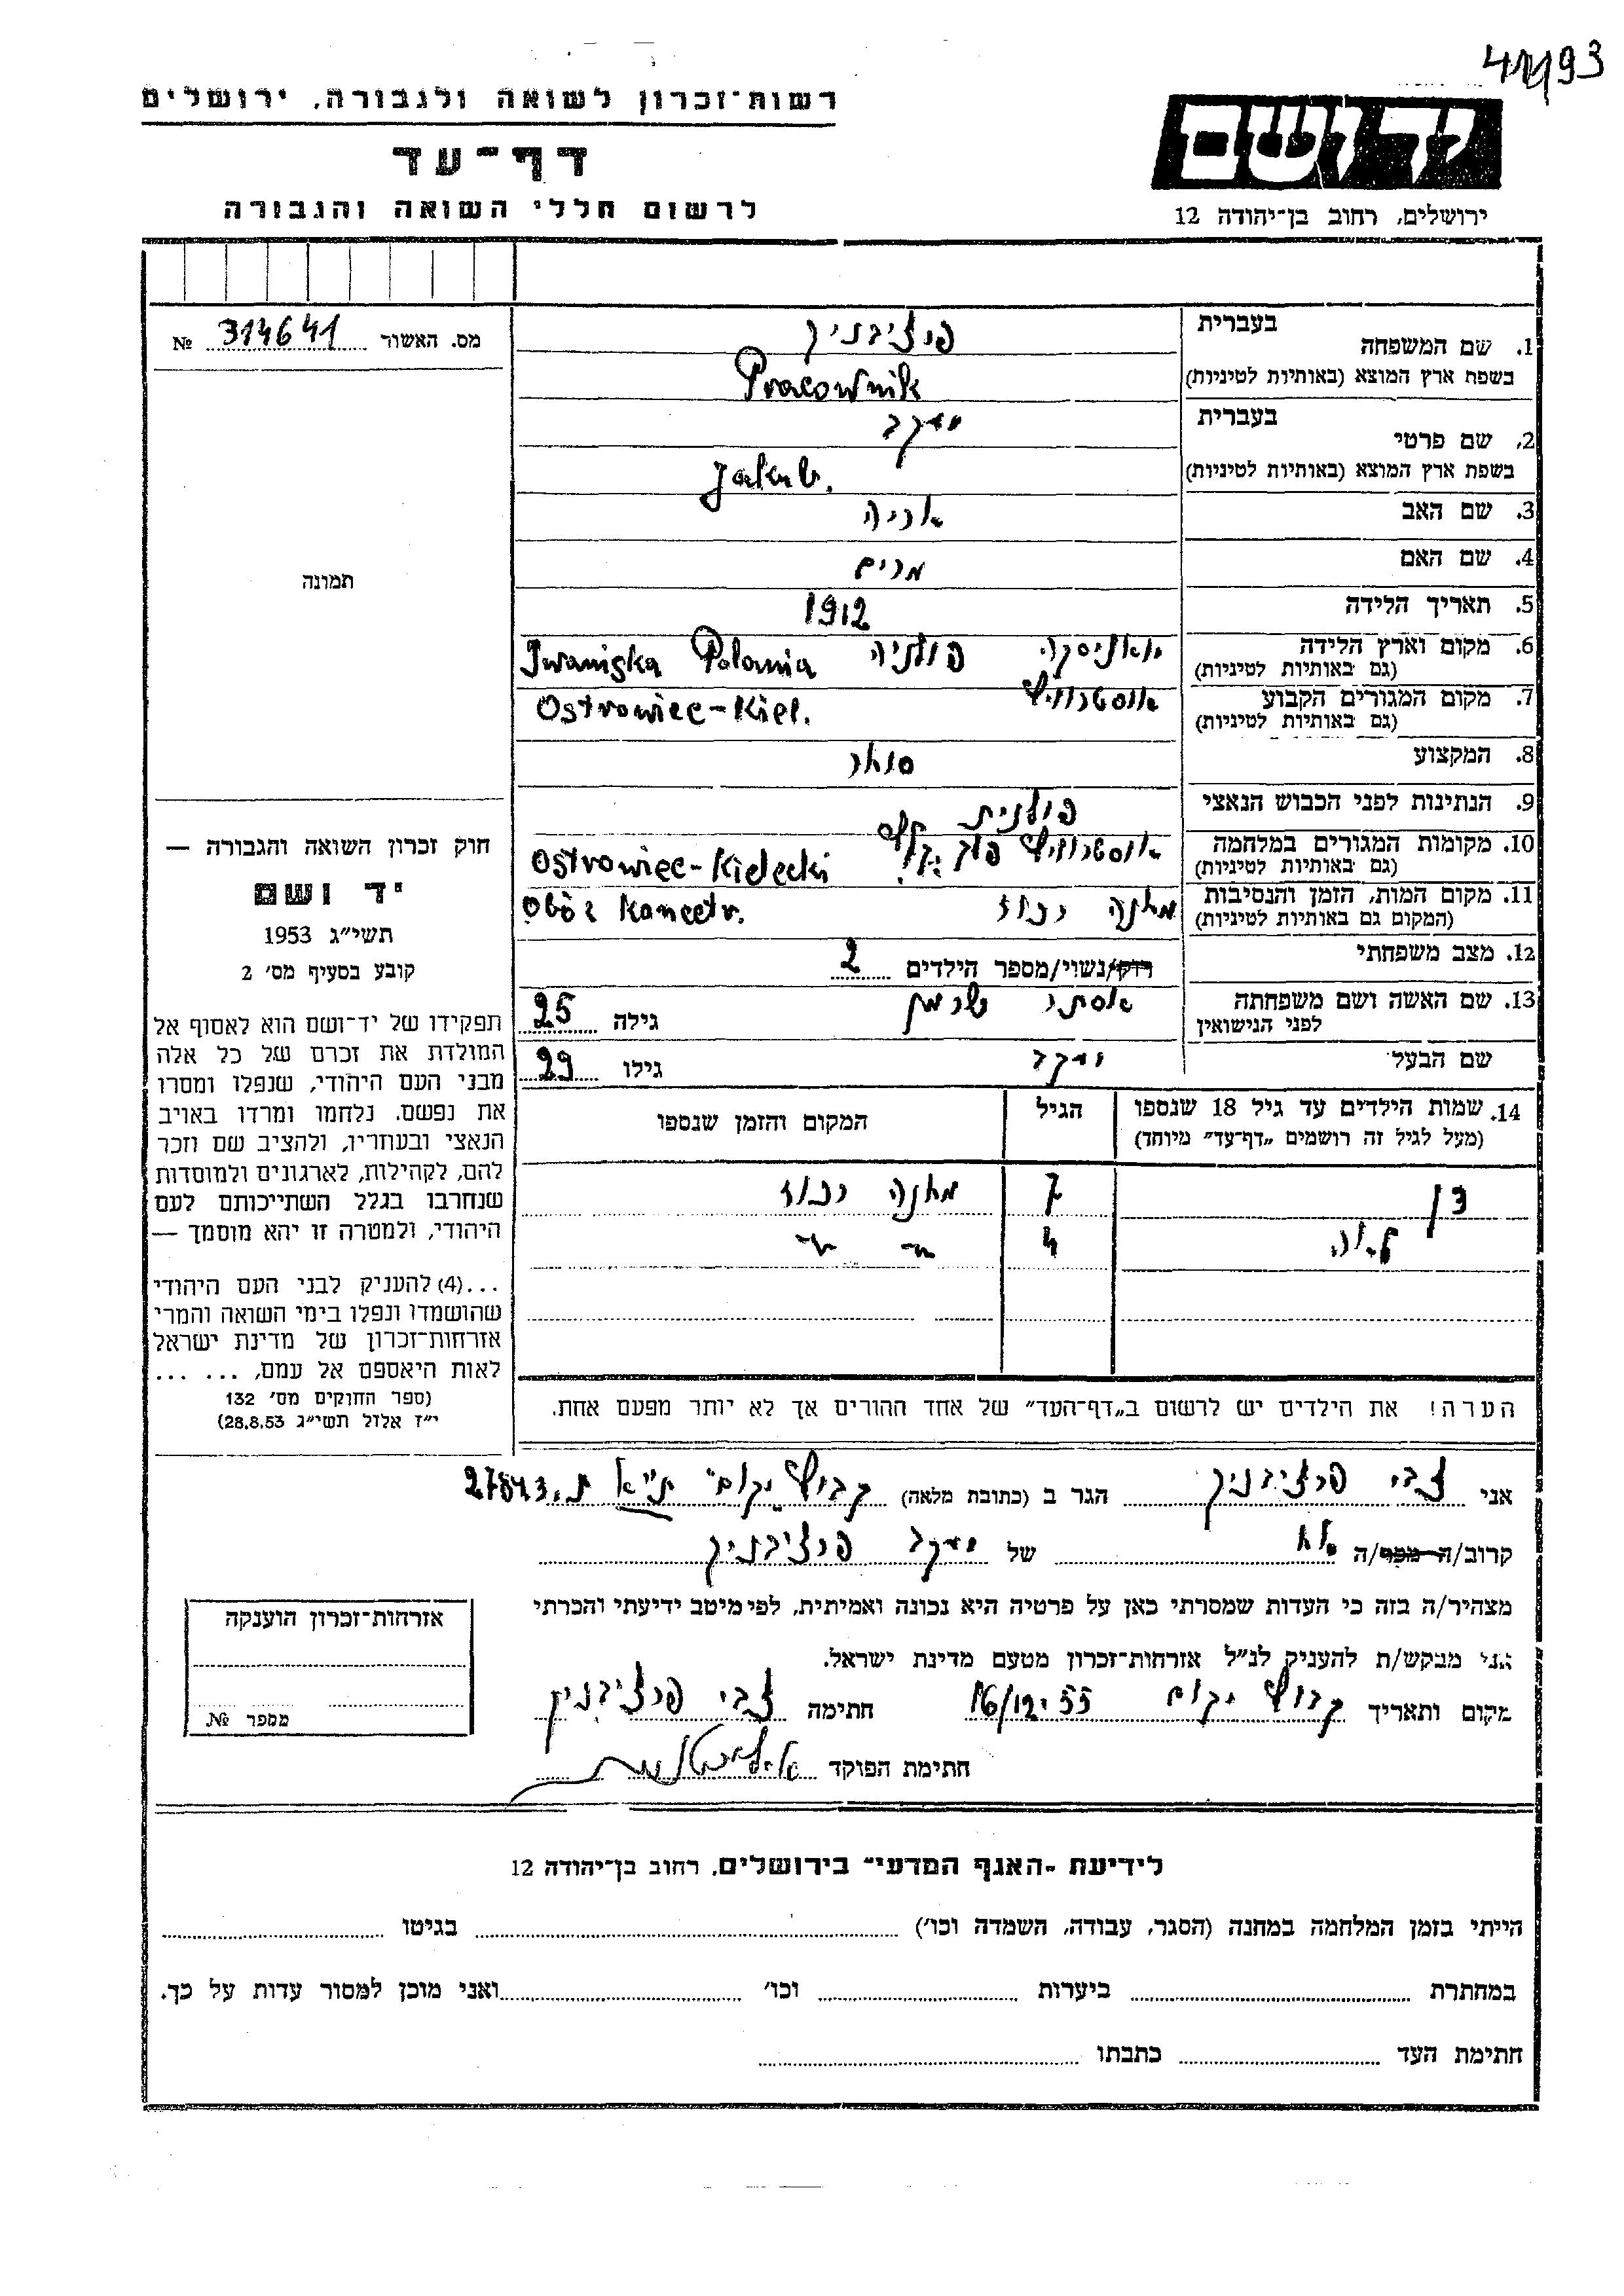 רשות־זכרון לשואה ולגבורה, ירושלים
דף־עד
לרשום חללי השואה והגבורה
ידושם
ירושלים, רחוב בן־יהודה 12
מס. האשור 314641 №
תמונה
חוק זכרון השואה והגבורה —
יד ושם
תשי״ג 1953
קובע בסעיף מס׳ 2
תפקידו של יד־ושם הוא לאסוף אל
המולדת את זכרם של כל אלה
מבני העם היהודי, שנפלו ומסרו
את נפשם, נלחמו ומרדו באויב
הנאצי ובעוזריו, ולהציב שם וזכר
להם, לקהילות, לארגונים ולמוסדות
שנחרבו בגלל השתייכותם לעם
היהודי, ולמטרה זו יהא מוסמך —
...(4) להעניק לבני העם היהודי
שהושמדו ונפלו בימי השואה והמרי
אזרחות־זכרון של מדינת ישראל
לאות היאספם אל עמם, ... ...
(ספר החוקים מס׳ 132
י״ז אלול תשי״ג 28.8.53)
1. שם המשפחה בעברית פרציבניק
בשפת ארץ המוצא (באותיות לטיניות) Pracownik
2. שם פרטי בעברית יעקב
בשפת ארץ המוצא (באותיות לטיניות) Jakub.
3. שם האב אריה
4. שם האם מרים
5. תאריך הלידה 1912
6. מקום וארץ הלידה (גם באותיות לטיניות) פולניה Iwaniska Polania
7. מקום המגורים הקבוע (גם באותיות לטיניות) Ostrowiec-Kiel.
8. המקצוע סוחר
9. הנתינות לפני הכבוש הנאצי פולנית
10. מקומות המגורים במלחמה (גם באותיות לטיניות) Ostrowiec-Kielecki
11. מקום המות, הזמן והנסיבות (המקום גם באותיות לטיניות) מחנה רכוז Obóz Koncetr.
12. מצב משפחתי רוק/נשוי/מספר הילדים 2
13. שם האשה ושם משפחתה לפני הנישואין אסתר גילה 25
שם הבעל יעקב גילו 29
14. שמות הילדים עד גיל 18 שנספו (מעל לגיל זה רושמים „דף־עד״ מיוחד) הגיל המקום והזמן שנספו
7 מחנה רכוז
4
הערה! את הילדים יש לרשום ב„דף־העד״ של אחד ההורים אך לא יותר מפעם אחת.
אני צבי פרציבניק הגר ב (כתובת מלאה) קבוץ יקום ת״א
קרוב/ה מכר/ה אח של יעקב פרציבניק
מצהיר/ה בזה כי העדות שמסרתי כאן על פרטיה היא נכונה ואמיתית, לפי מיטב ידיעתי והכרתי
אני מבקש/ת להעניק לנ״ל אזרחות־זכרון מטעם מדינת ישראל.
מקום ותאריך קבוץ יקום 16/12.55 חתימה צבי פרציבניק
חתימת הפוקד
אזרחות־זכרון הוענקה
מספר №
לידיעת „האגף המדעי״ בירושלים, רחוב בן־יהודה 12
הייתי בזמן המלחמה במחנה (הסגר, עבודה, השמדה וכו׳) בגיטו
במחתרת ביערות וכו׳ ואני מוכן למסור עדות על כך.
חתימת העד כתבתו